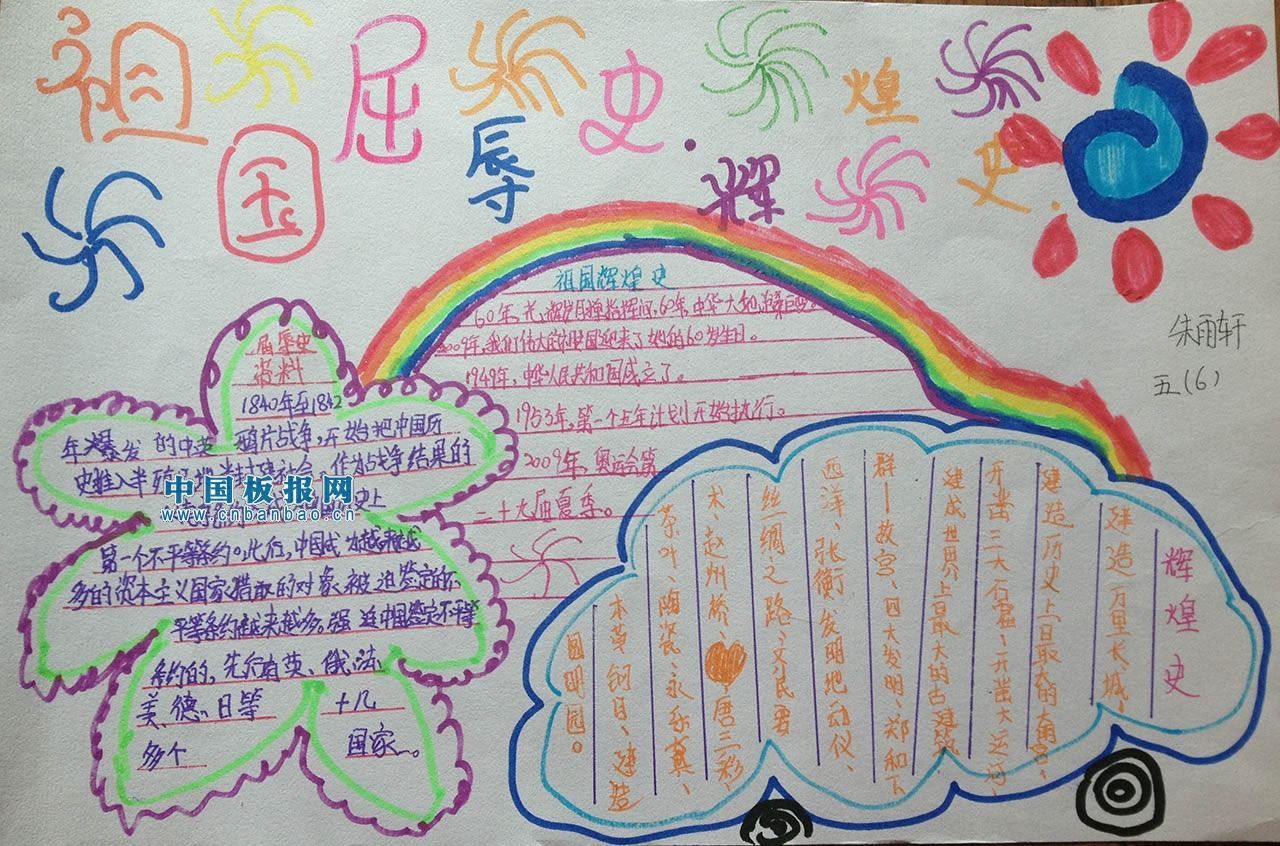 祖国屈辱史·辉煌史
朱雨轩
五(6)
祖国辉煌史
60年,光辉岁月弹指挥间,60年,中华大地沧桑巨变。
2009年,我们伟大的祖国迎来了她的60岁生日。
1949年,中华人民共和国成立了。
1953年,第一个五年计划开始执行。
2009年,奥运会第
二十九届夏季。
屈辱史
资料
1840年至1842
年爆发 的中英 鸦片战争,开始把中国历
史推入半殖民地半封建社会,作为战争结果的
史上
第一个不平等条约。此行,中国成为越来越
多的资本主义国家猎取的对象,被迫签定的不
平等条约越来越多。强迫中国签定不平等
条约的,先后有英、俄、法、
美、德、日等 十几
多个 国家。
中国板报网
www.cnbanbao.cn
辉煌史
建造万里长城、
建造历史上最大的
开凿三大石窟、开凿大运河、
建成世界上最大的古建筑
群——故宫、四大发明、郑和下
西洋、张衡发明地动仪、
丝绸之路、
术、赵州桥、唐三彩、
茶叶、陶瓷、永乐
本草纲目、建造
圆明园。